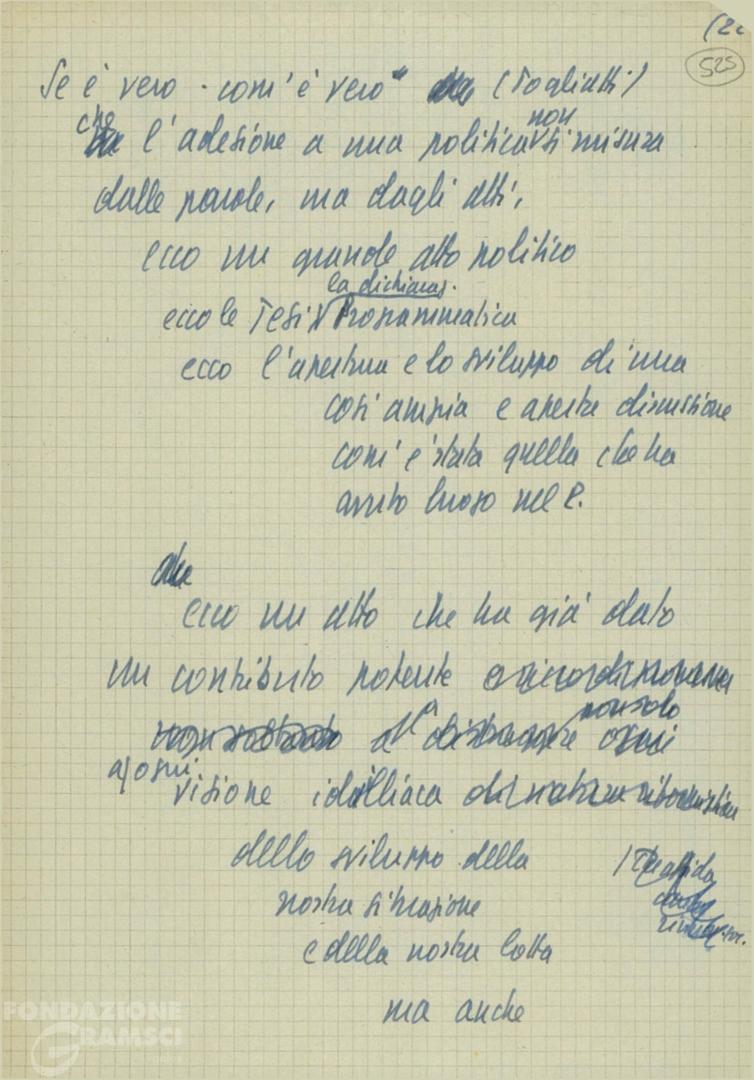 (2
525
Se è vero - com'è vero - (Togliatti)
che l'adesione a una politica non si misura
dalle parole, ma dagli atti,
ecco un grande atto politico
la dichiaraz.
ecco le Tesi Programmatica
ecco l'apertura e lo sviluppo di una
così ampia e aperta discussione
com'è stata quella che ha
avuto luogo nel P.
ecco un atto che ha già dato
un contributo potente
non soltanto a distruggere ogni
non solo
a) ogni
visione idilliaca di natura riformistica
dello sviluppo della
nostra situazione
e della nostra lotta
ma anche
FONDAZIONE
GRAMSCI